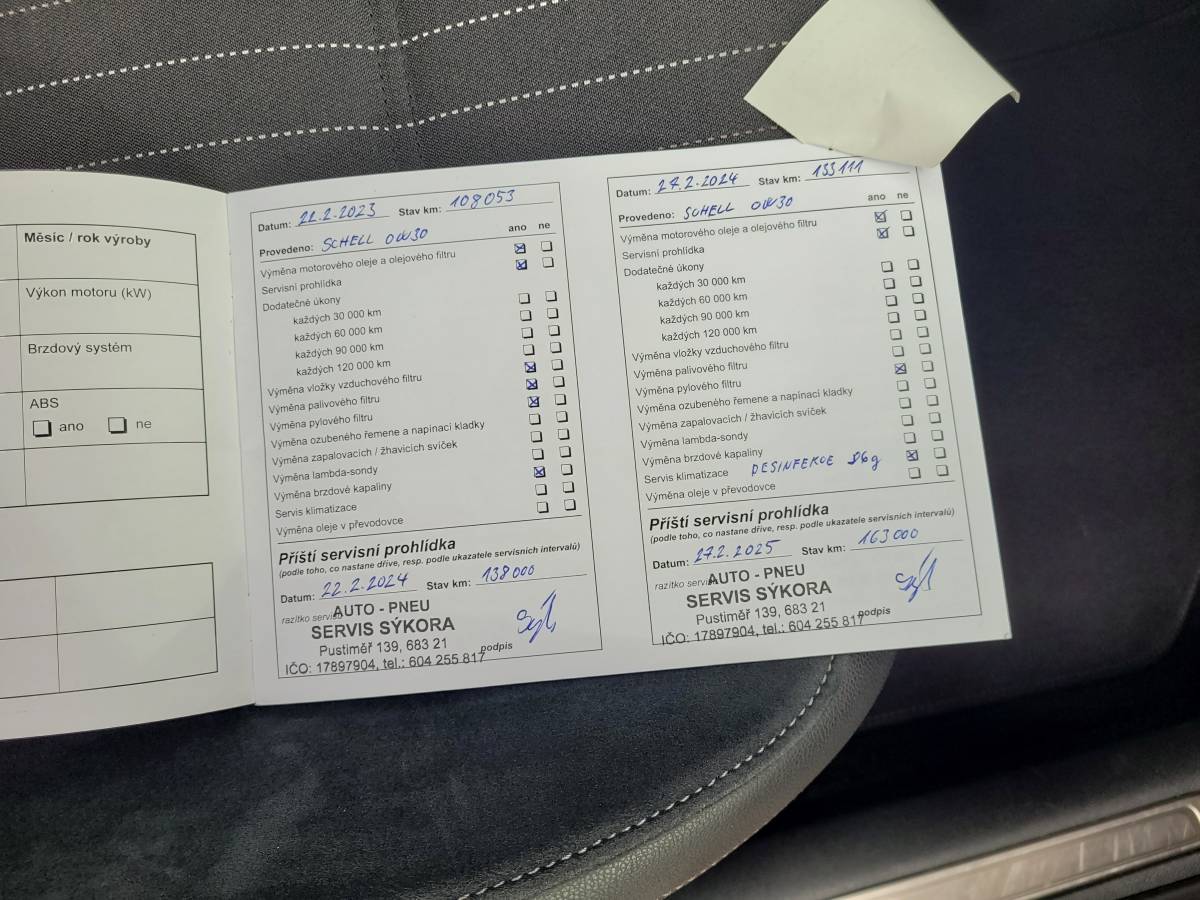 Měsíc / rok výroby
Výkon motoru (kW)
Brzdový systém
ABS
ano ne
Datum: 22.2.2023 Stav km: 108053
Provedeno: SCHELL 0W30 ano ne
Výměna motorového oleje a olejového filtru
Servisní prohlídka
Dodatečné úkony
každých 30 000 km
každých 60 000 km
každých 90 000 km
každých 120 000 km
Výměna vložky vzduchového filtru
Výměna palivového filtru
Výměna pylového filtru
Výměna ozubeného řemene a napínací kladky
Výměna zapalovacích / žhavicích svíček
Výměna lambda-sondy
Výměna brzdové kapaliny
Servis klimatizace
Výměna oleje v převodovce
Příští servisní prohlídka
(podle toho, co nastane dříve, resp. podle ukazatele servisních intervalů)
Datum: 22.2.2024 Stav km: 138000
razítko servisu
AUTO - PNEU
SERVIS SÝKORA
Pustiměř 139, 683 21
podpis
IČO: 17897904, tel.: 604 255 817
Datum: 27.2.2024 Stav km: 133111
Provedeno: SCHELL 0W30 ano ne
Výměna motorového oleje a olejového filtru
Servisní prohlídka
Dodatečné úkony
každých 30 000 km
každých 60 000 km
každých 90 000 km
každých 120 000 km
Výměna vložky vzduchového filtru
Výměna palivového filtru
Výměna pylového filtru
Výměna ozubeného řemene a napínací kladky
Výměna zapalovacích / žhavicích svíček
Výměna lambda-sondy
Výměna brzdové kapaliny
Servis klimatizace DESINFEKCE 86g
Výměna oleje v převodovce
Příští servisní prohlídka
(podle toho, co nastane dříve, resp. podle ukazatele servisních intervalů)
Datum: 27.2.2025 Stav km: 163000
razítko servisu
AUTO - PNEU
SERVIS SÝKORA
Pustiměř 139, 683 21
podpis
IČO: 17897904, tel.: 604 255 817